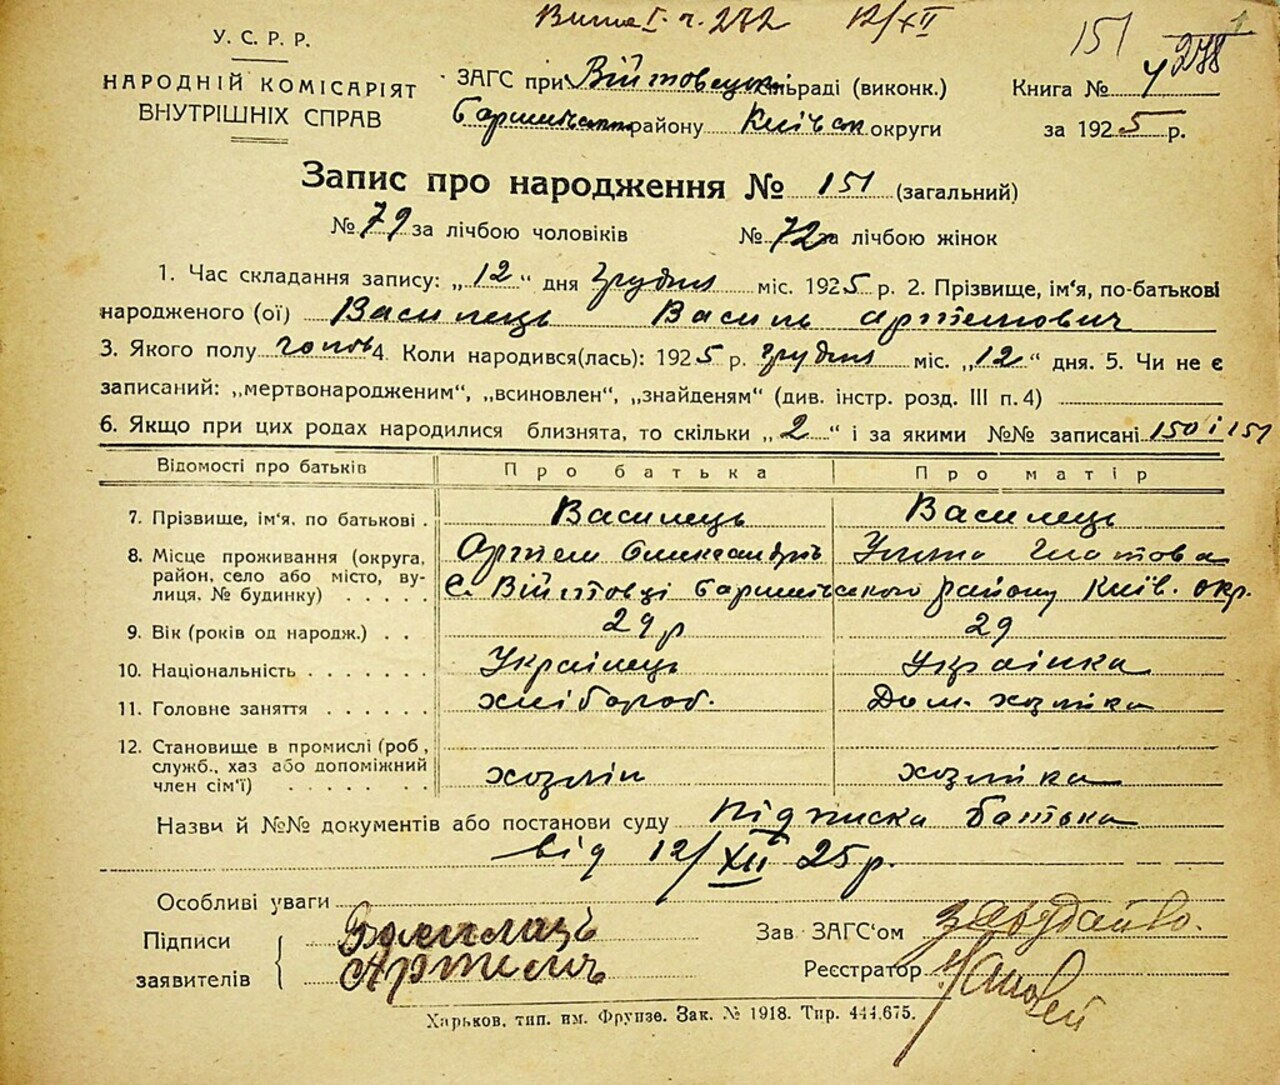 151
У. С. Р. Р.
НАРОДНІЙ КОМІСАРІЯТ
ВНУТРІШНІХ СПРАВ
ЗАГС при Війтовецьк сільраді (виконк.)
Баришівськ району Київськ округи
Книга №
за 1925 р.
Запис про народження № 151 (загальний)
№ 79 за лічбою чоловіків № 72 за лічбою жінок
1. Час складання запису: „12“ дня грудня міс. 1925 р. 2. Прізвище, ім'я, по-батькові
народженого (ої) Василець Василь Артемович
3. Якого полу чолов 4. Коли народився(лась): 1925 р. грудня міс. „12“ дня. 5. Чи не є
записаний: „мертвонародженим“, „всиновлен“, „знайденям“ (див. інстр. розд. III п. 4)
6. Якщо при цих родах народилися близнята, то скільки „2“ і за якими №№ записані 150 і 151
Відомості про батьків Про батька Про матір
7. Прізвище, ім'я, по батькові . Василець Василець
Артем Олександрів Уляна Гнатова
8. Місце проживання (округа, район, село або місто, вулиця, № будинку) . . . . с. Війтовці Баришівського району Київ. окр.
9. Вік (років од народж.) . . 29 р 29
10. Національність . . . . . . . Українець Українка
11. Головне заняття . . . . . . хлібороб. Дом. хозяйка
12. Становище в промислі (роб, служб., хаз або допоміжний член сім'ї) . . . . . . хозяїн хозяйка
Назви й №№ документів або постанови суду Підписка батька
від 12/XII 25 р.
Особливі уваги
Підписи
заявителів
Василець
Артем
Зав ЗАГС'ом
Реєстратор
Харьков, тип. им. Фрунзе. Зак. № 1918. Тир. 444.675.